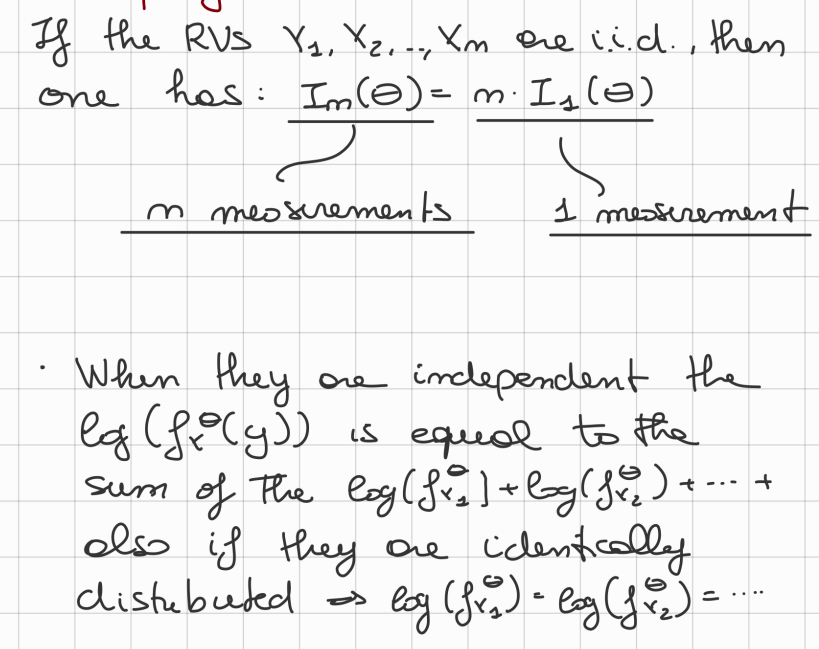 If the RVs Y₁, Y₂, .., Yₙ are i.i.d., then
one has: Iₙ(θ) = n · I₁(θ)
n measurements 1 measurement
· When they are independent the
log(f_Y^θ(y)) is equal to the
sum of the log(f_Y₁^θ] + log(f_Y₂^θ) + ··· +
also if they are identically
distributed ⇒ log(f_Y₁^θ) = log(f_Y₂^θ) = ····